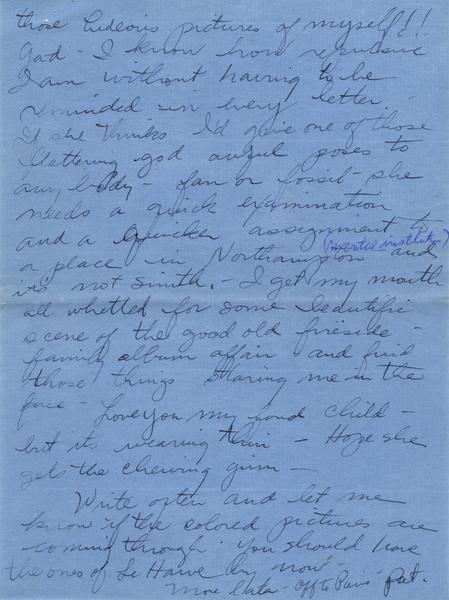 those hideous pictures of myself!!
God - I know how repulsive
I am without having to be
reminded in every letter. -
If she thinks I'd give one of those
flattering god awful poses to
anybody - fan or fossil - she
needs a quick examination
and a quicker assignment to
(mental institution)
a place in Northampton and
it's not Smith. - I get my mouth
all whetted for some beautific
scene of the good old fireside -
family album affair and find
those things staring me in the
face - Love you my fond child -
but it's wearing thin - Hope she
gets the chewing gum -
Write often and let me
know if the colored pictures are
coming through. You should have
the ones of Le Havre by now -
More later - Off to Paris - Pat.